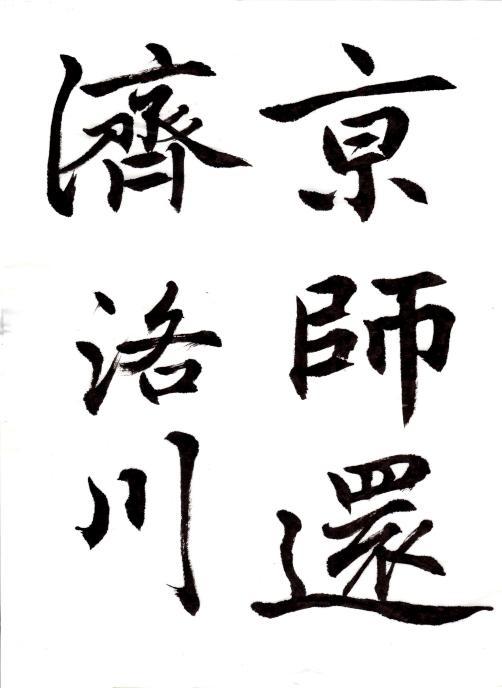 京師還
濟洛川